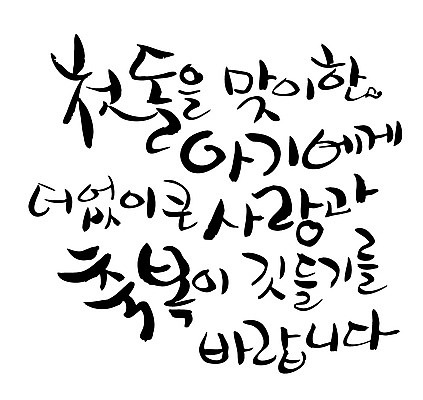 첫돌을 맞이한
아기에게
더없이 큰 사랑과
축복이 깃들기를
바랍니다